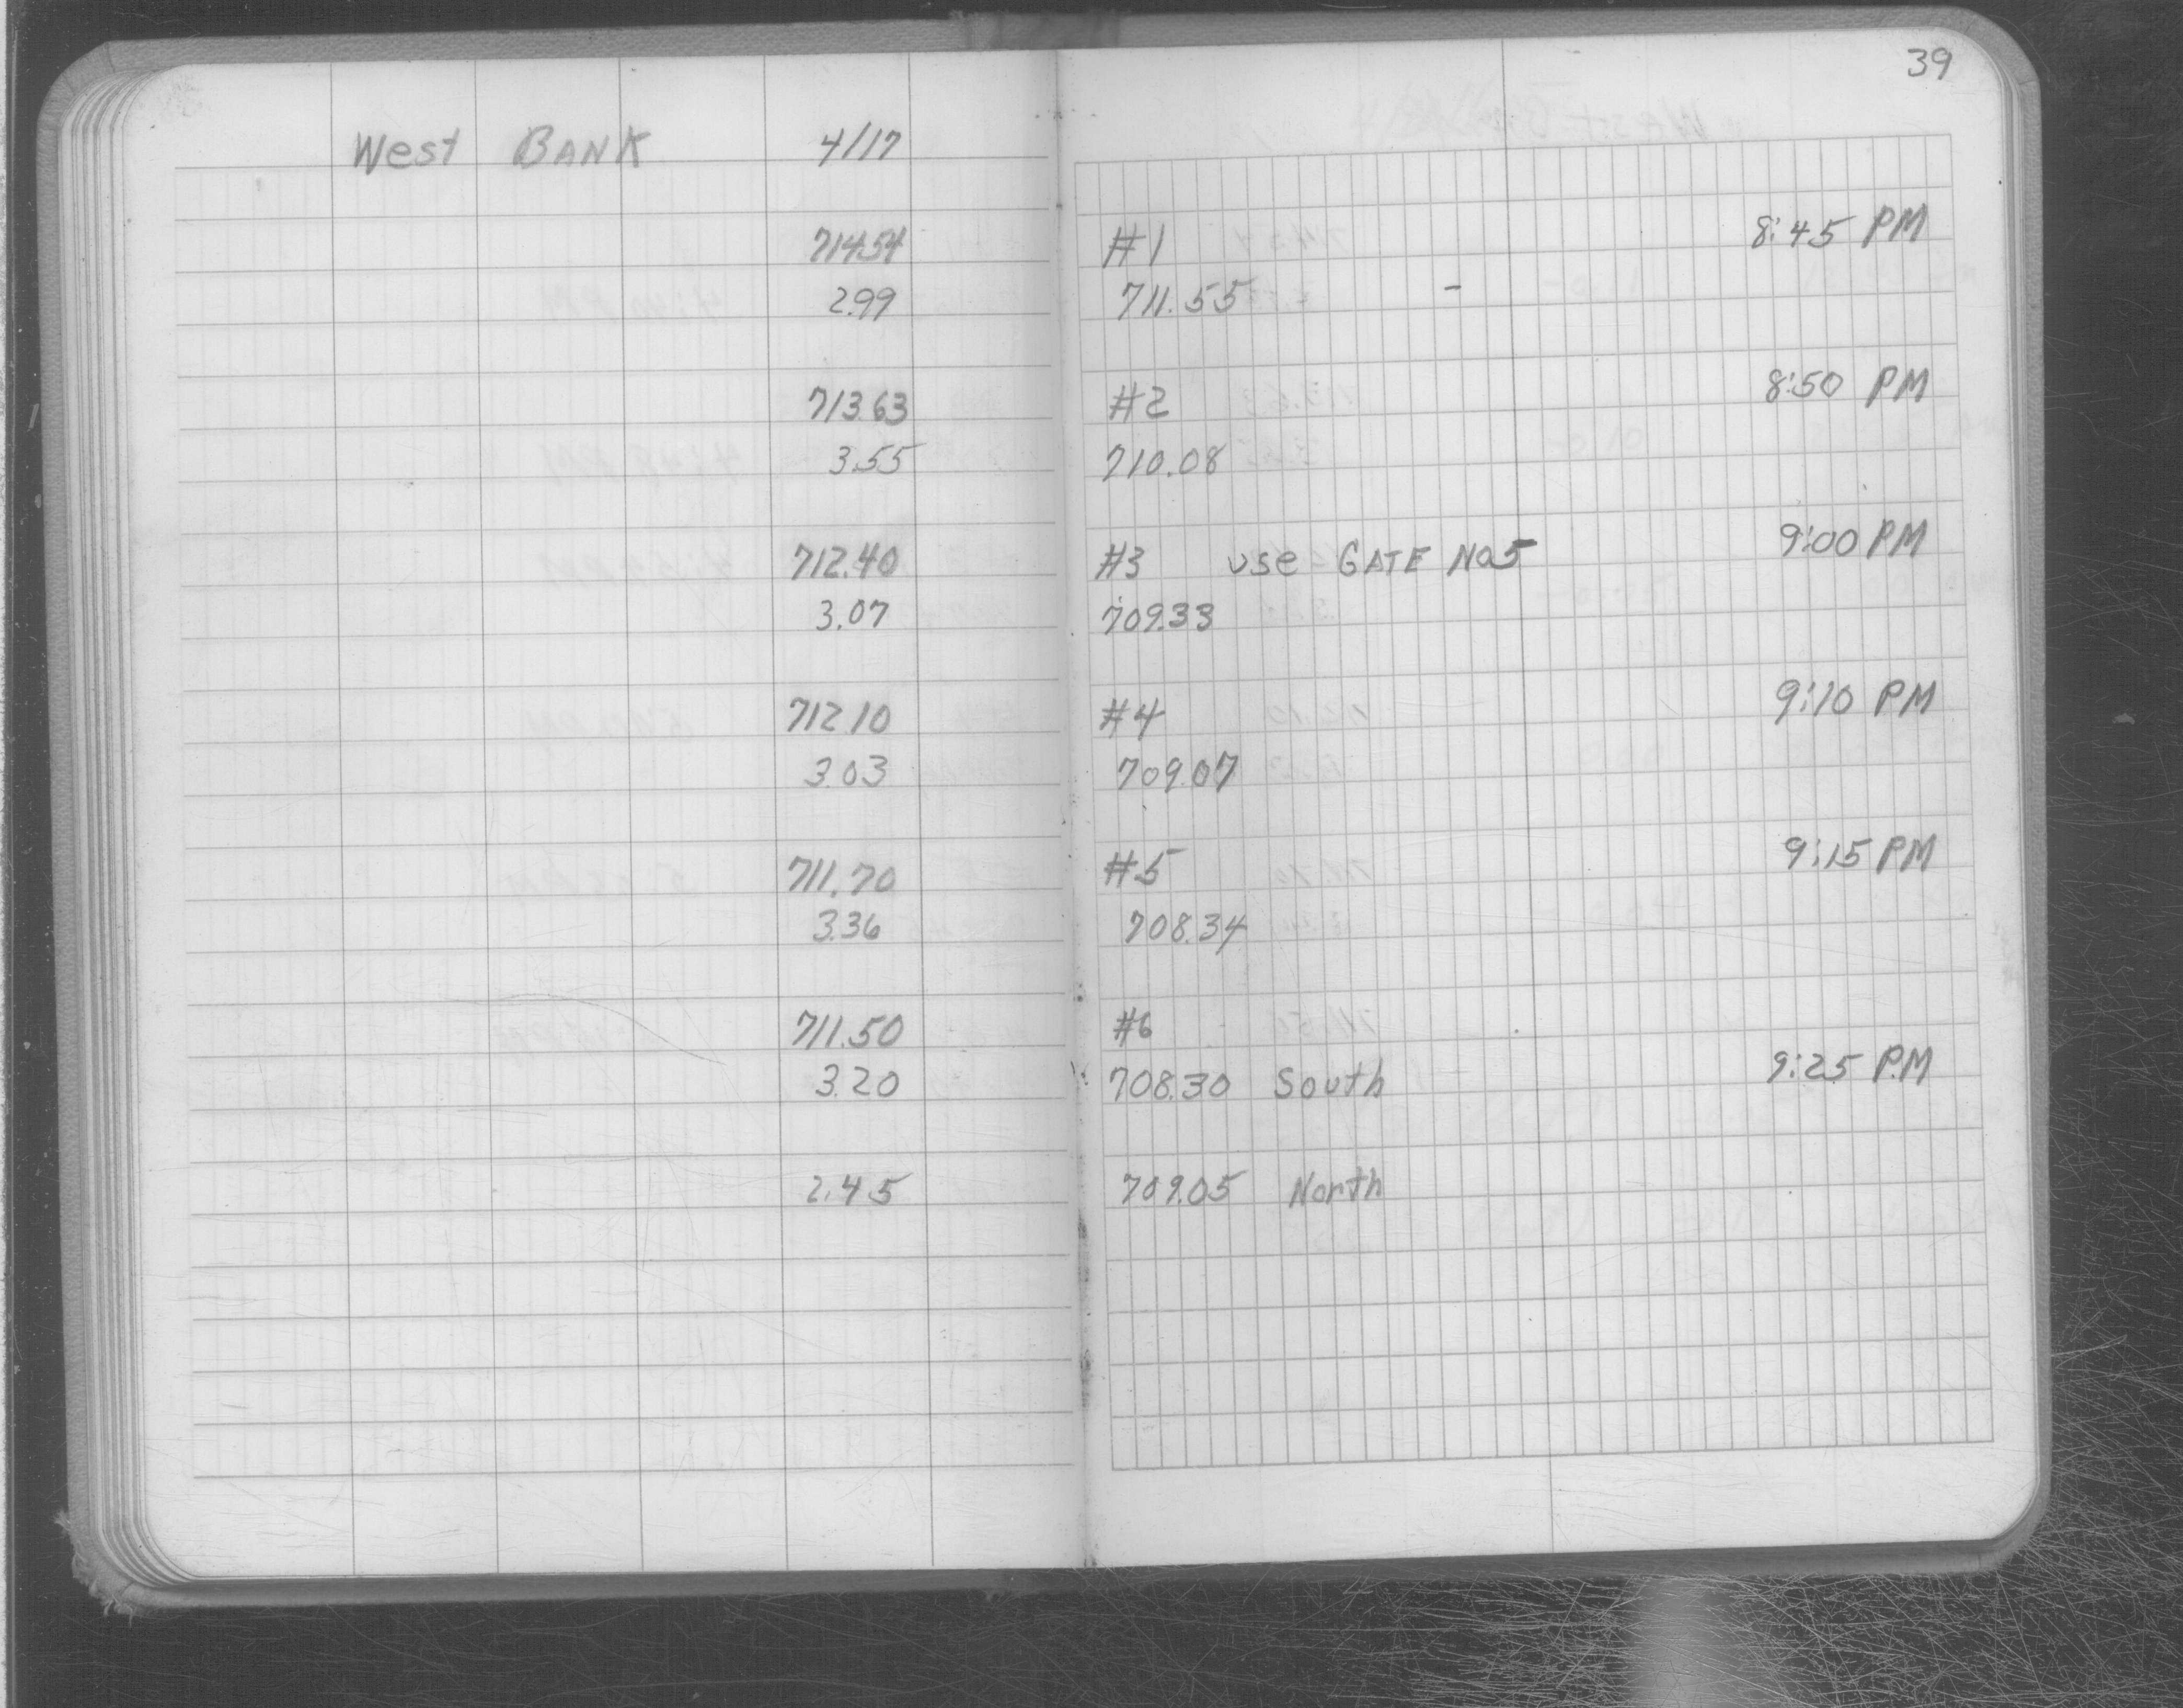 39
West BANK 4/17
714.54 #1 8:45 PM
2.99 711.55 -
713.63 #2 8:50 PM
3.55 710.08
712.40 #3 use GATE No5 9:00 PM
3.07 709.33
712.10 #4 9:10 PM
3.03 709.07
711.70 #5 9:15 PM
3.36 708.34
711.50 #6
3.20 708.30 South 9:25 P.M
2.45 709.05 North